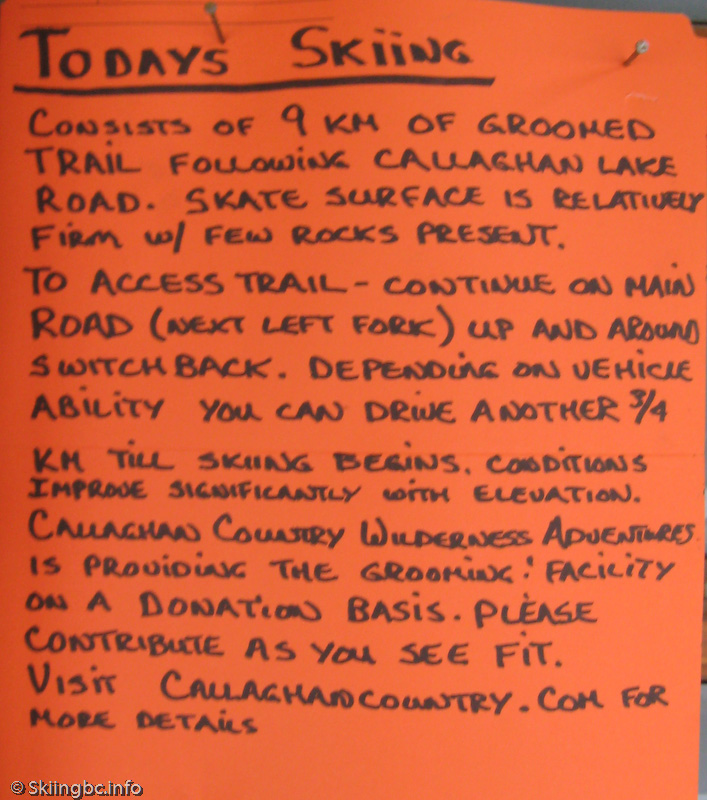 TODAYS SKIING
CONSISTS OF 9 KM OF GROOMED
TRAIL FOLLOWING CALLAGHAN LAKE
ROAD. SKATE SURFACE IS RELATIVELY
FIRM W/ FEW ROCKS PRESENT.
TO ACCESS TRAIL - CONTINUE ON MAIN
ROAD (NEXT LEFT FORK) UP AND AROUND
SWITCHBACK. DEPENDING ON VEHICLE
ABILITY YOU CAN DRIVE ANOTHER 3/4
KM TILL SKIING BEGINS. CONDITIONS
IMPROVE SIGNIFICANTLY WITH ELEVATION.
CALLAGHAN COUNTRY WILDERNESS ADVENTURES
IS PROVIDING THE GROOMING ! FACILITY
ON A DONATION BASIS. PLEASE
CONTRIBUTE AS YOU SEE FIT.
VISIT CALLAGHANCOUNTRY.COM FOR
MORE DETAILS
© Skiingbc.info